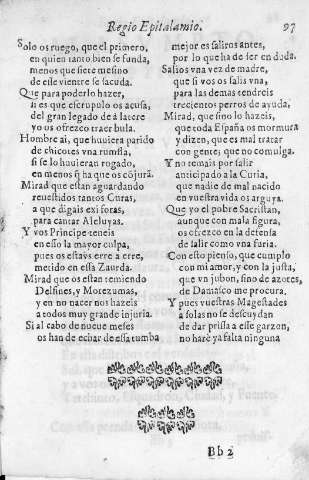 Regio Epitalamio. 97
Solo os ruego, que el primero,
en quien tanto bien se funda,
menos que siete mesino
de esse vientre se sacuda.
Que para poderlo hazer,
si es que escrupulo os acusa,
del gran legado de à latere
yo os ofrezco traer bula.
Hombre ai, que huviera parido
de chicotes vna rumfla,
si se lo huvieran rogado,
en menos q̃ ha que os cõjurã.
Mirad que estan aguardando
revestidos tantos Curas,
a que digais exi foras,
para cantar Aleluyas.
Y vos Principe teneis
en esso la mayor culpa,
pues os estavs erre a erre,
metido en essa Zaurda.
Mirad que os estan temiendo
Delfines, y Motezumas,
y en no nacer nos hazeis
a todos muy grande injuria.
Si al cabo de nueve meses
os han de echar de essa tumba
mejor es saliros antes,
por lo que ha de ser en duda.
Salios vna vez de madre,
que si vos os salis vna,
para las demas tendreis
trecientos perros de ayuda,
Mirad, que sino lo hazeis,
que toda España os mormura
y dizen, que es mal tratar
con gente, que no comulga.
Y no temais por salir
anticipado a la Curia,
que nadie de mal nacido
en vuestra vida os arguya.
Que yo el pobre Sacristan,
aunque con mala figura,
os ofrezco en la defensa
de salir como vna furia.
Con esto pienso, que cumplo
con mi amor, y con la justa,
que vn jubon, sino de azotes,
de Damasco me procura.
Y pues vuestras Magestades
a solas no se descuydan
de dar prissa a esse garzon,
no harè ya falta ninguna
Bb 2